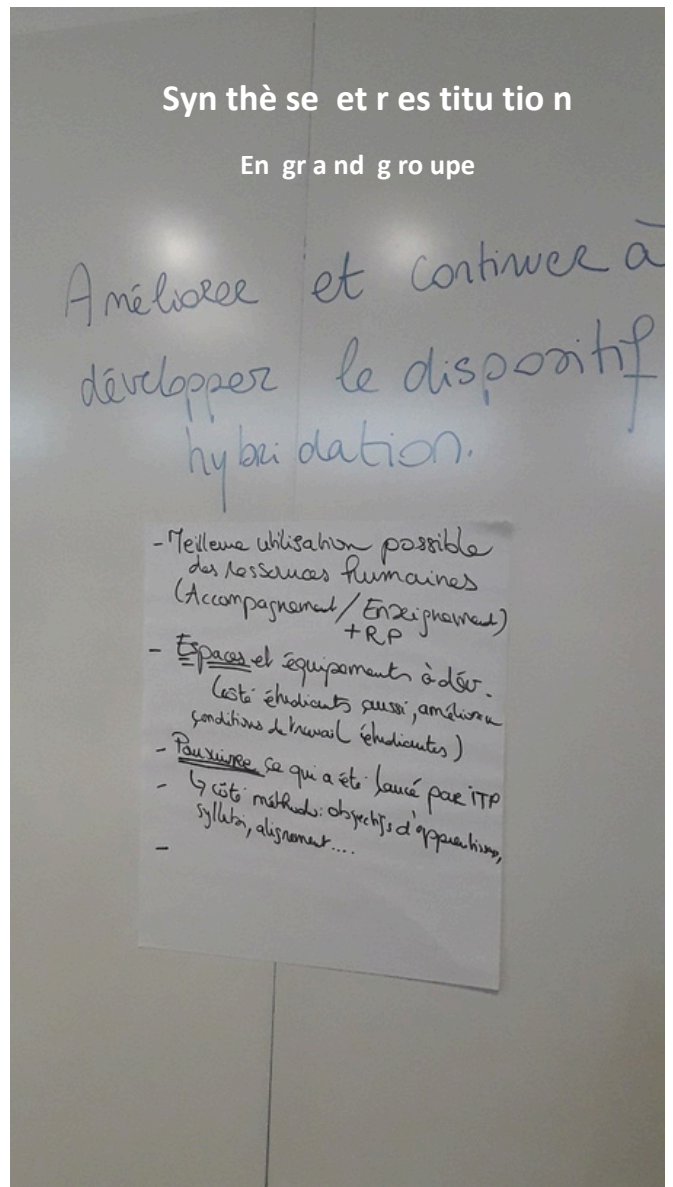 Synthèse et restitution
En grand groupe
Améliorer et continuer à
développer le dispositif
hybridation.
- Meilleure utilisation possible
des ressources humaines
(Accompagnement / Enseignement)
+ RP
- Espaces et équipements à dév.
(côté étudiants aussi, améliorer
conditions de travail étudiantes)
- Poursuivre ce qui a été lancé par ITP
- ↳ côté méthodo : objectifs d'apprentissage,
syllabi, alignement....
-